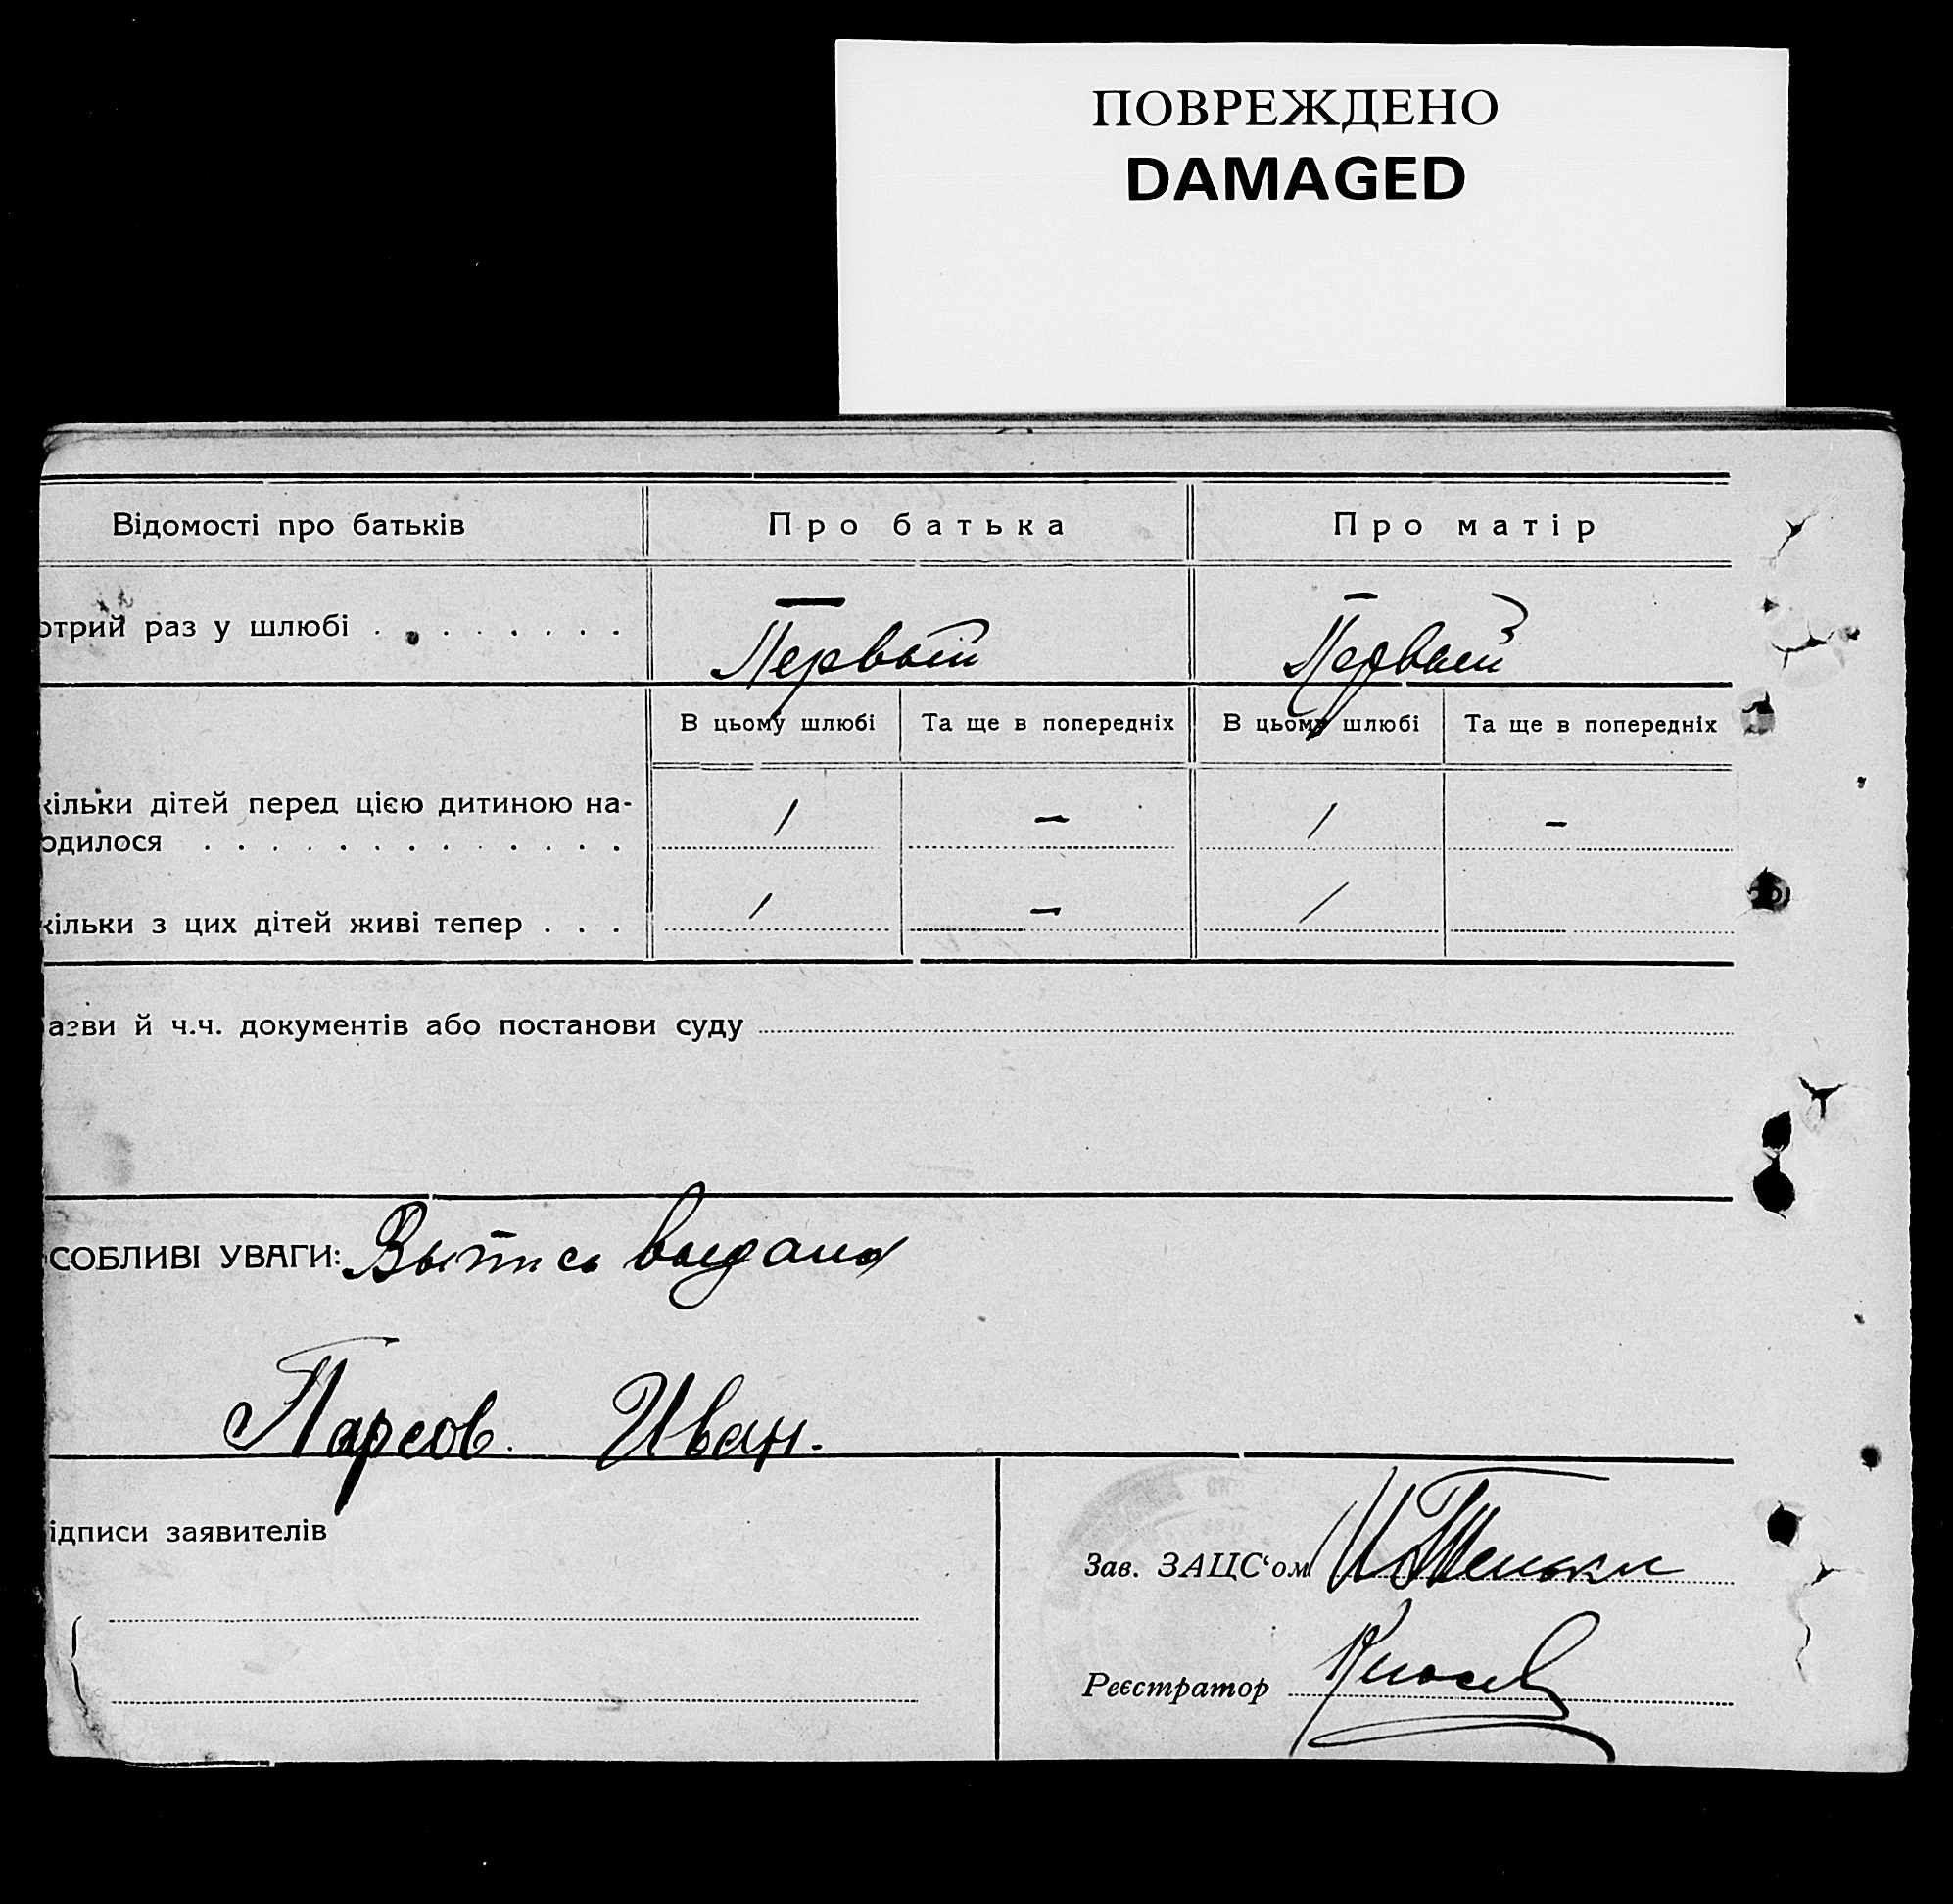 ПОВРЕЖДЕНО
DAMAGED
Відомості про батьків Про батька Про матір
отрий раз у шлюбі . . . . . . . . Первый Первый
В цьому шлюбі Та ще в попередніх В цьому шлюбі Та ще в попередніх
кільки дітей перед цією дитиною на-
одилося . . . . . . . . . . . . . 1 — 1 —
кільки з цих дітей живі тепер . . . 1 — 1
азви й ч.ч. документів або постанови суду
СОБЛИВІ УВАГИ: Выпись выдана
Парсов. Иван.
ідписи заявителів
Зав. ЗАЦС‘ом
Реєстратор